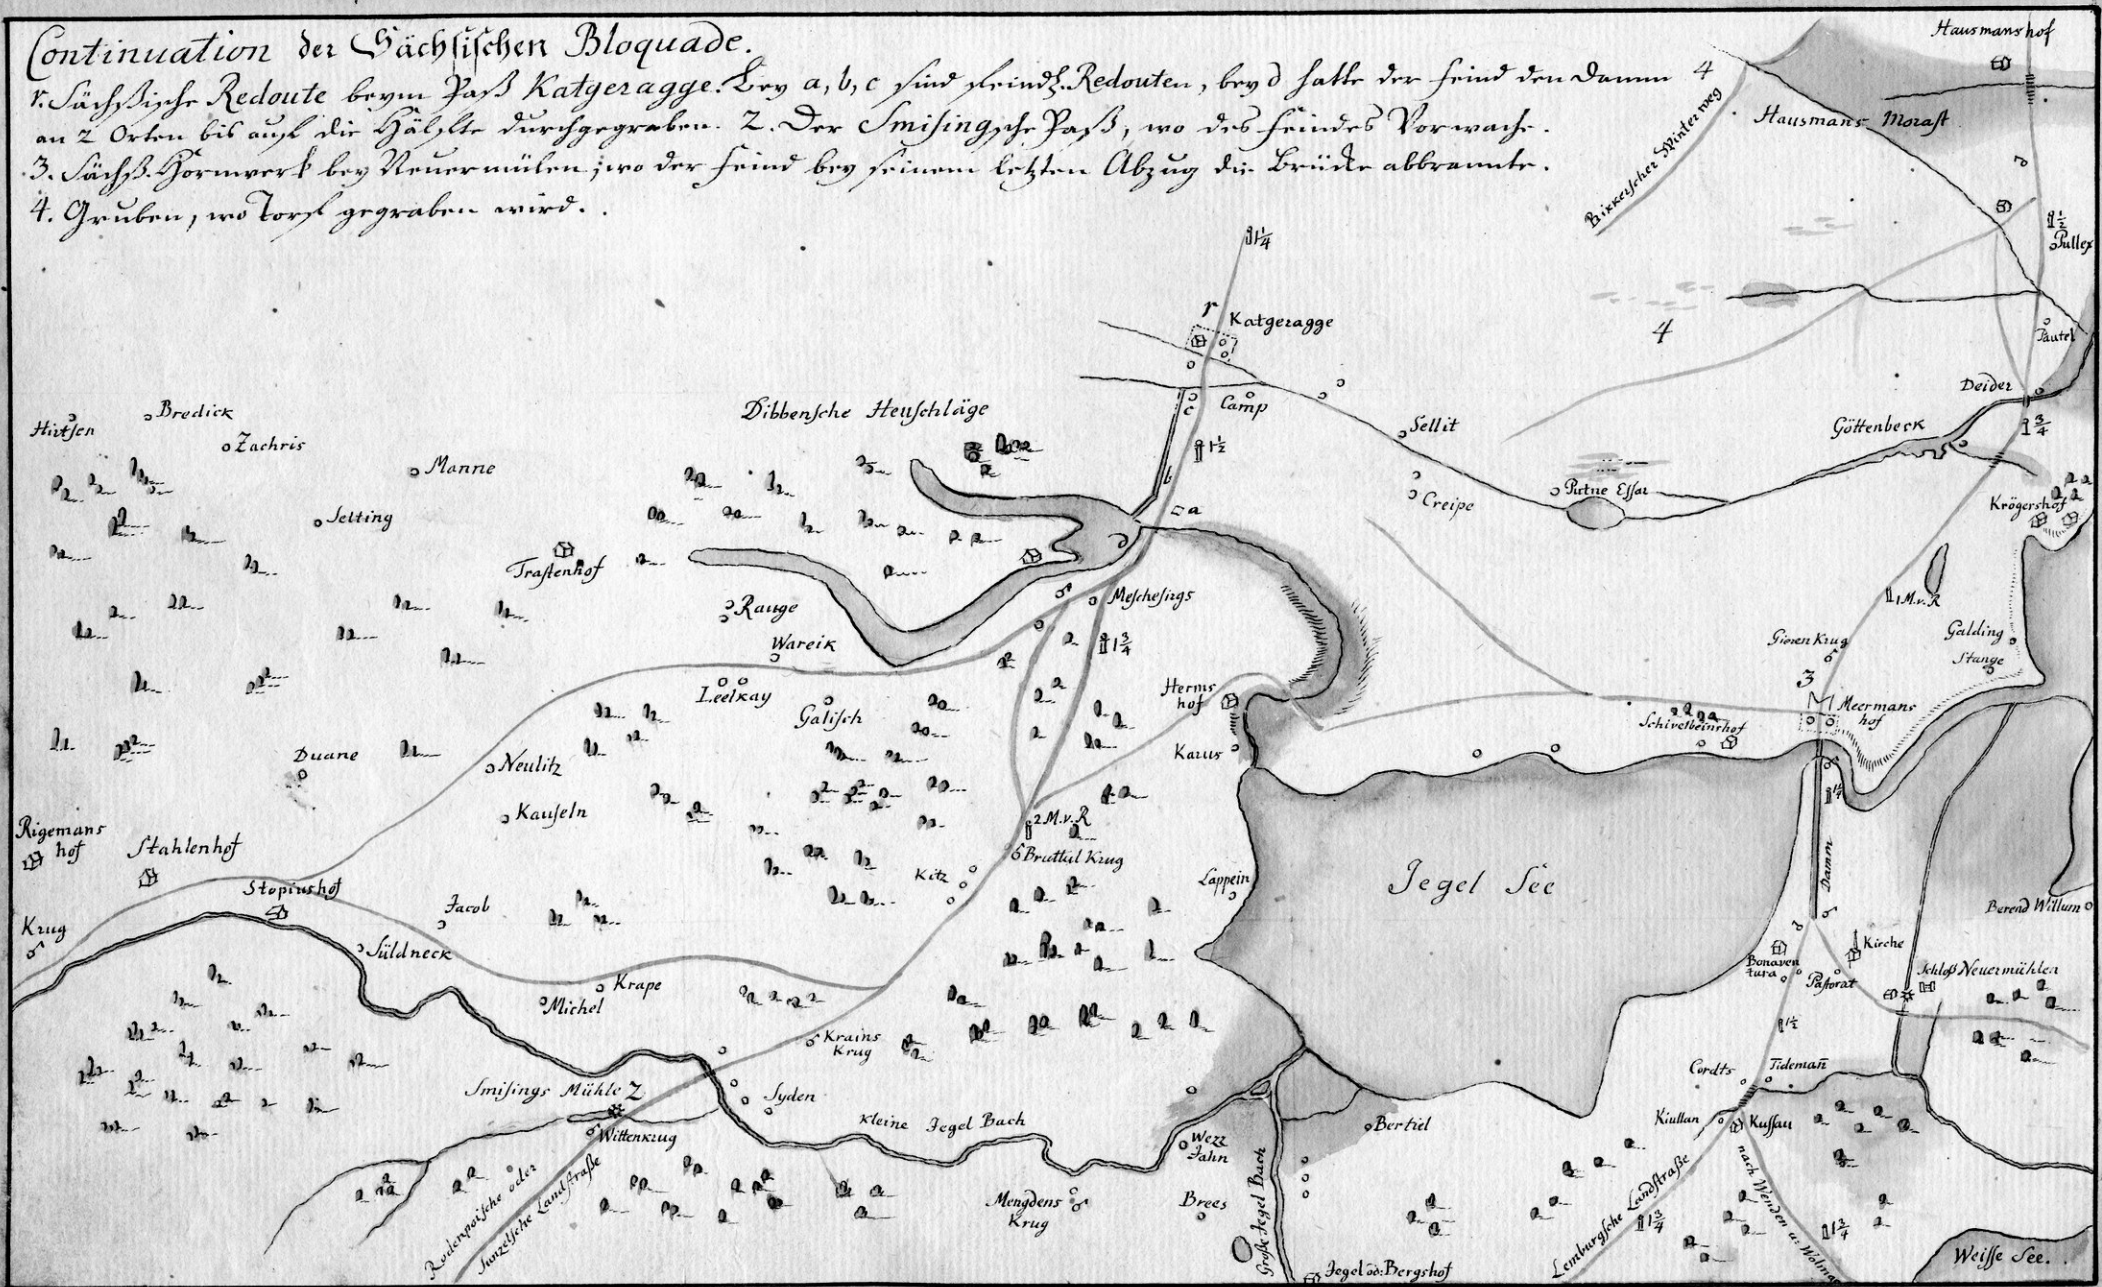 Continuation der Sächsischen Bloquade.
r. Sächßische Redoute beym Paß Katgeragge. Bey a, b, c sind feindl. Redouten, bey d hatte der Feind den Damm
an 2 Orten bis auf die Hälfte durchgegraben. 2. Der Smisingsche Paß, wo des Feindes Vorwache.
3. Sächß. Hornwerk bey Neuermülen, wo der Feind bey seinem letzten Abzug die Brücke abbrannte.
4. Gruben, wo Torf gegraben wird.
Hausmanshof
4
Hausmans Morast
Bikkerscher Winterweg
1/2
Pullex
1 1/4
r
Katgeragge
4
Pautel
Deider
3/4
Camp
c
Göttenbeck
Dibbensche Heuschläge
Hirtsen
Bredick
Zachris
Manne
Selting
1 1/2
b
Sellit
Creipe
Purne Essar
Krögershof
a
d
Trastenhof
Rauge
Wareik
Meschesings
1 3/4
1 M.v.R
Galding
Stange
Gieren Krug
Leelkay
Galisch
Herms
hof
3
Meermans
hof
Schivelbeinshof
Karus
Duane
Neulitz
Kauseln
2 M.v.R
Bruttul Krug
Rigemans
hof
Stahlenhof
Kitz
Lappein
Jegel See
Damm
1 1/4
Stopiushof
Jacob
Krug
Süldneck
Berend Willum
Kirche
Bonaven
tura
Pastorat
Schloß Neuermühlen
Michel
Krape
Krains
Krug
1 1/2
Smisings Mühle 2
Syden
Wittenkrug
Kleine Jegel Bach
Cordts
Tideman̄
Kiullan
Kussau
Bertiel
Wezz
Jahn
Rodenpoische oder
Sunzelsche Landstraße
Mengdens
Krug
Brees
Große Jegel Bach
Jegel od: Bergshof
Lemburgsche Landstraße
1 3/4
nach Wenden u: Wolmar
1 3/4
Weisse See.